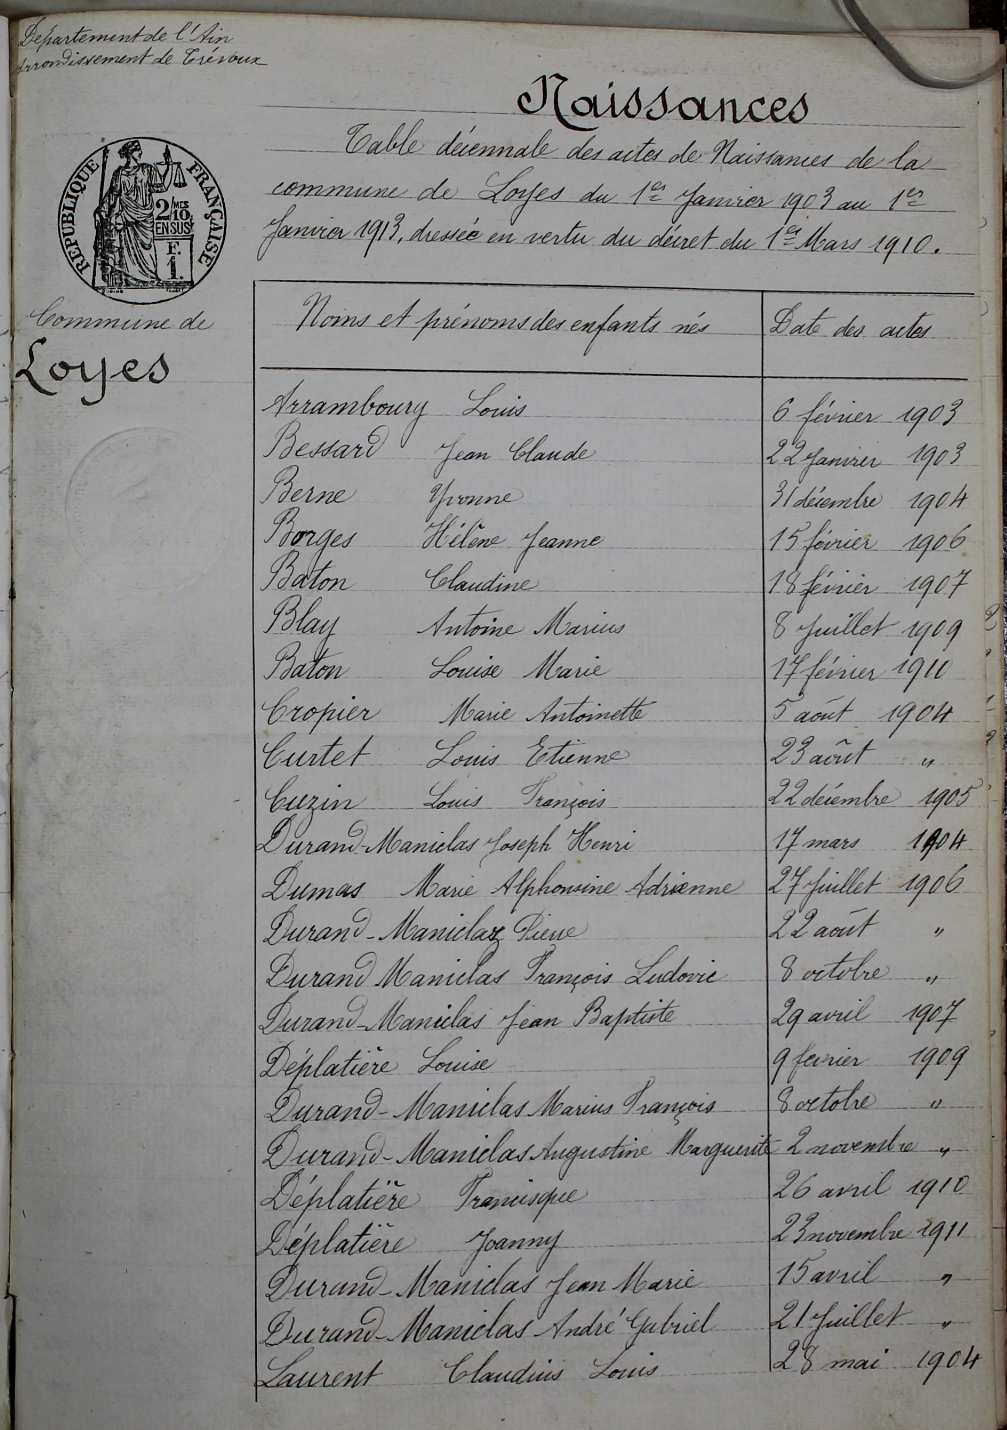 Département de l'Ain
Arrondissement de Trévoux
RÉPUBLIQUE FRANÇAISE
2/10 MES
EN SUS
F.
1.
Commune de
Loyes
Naissances
Table décennale des actes de Naissances de la
commune de Loyes du 1er Janvier 1903 au 1er
Janvier 1913, dressée en vertu du décret du 1er Mars 1910.
Noms et prénoms des enfants nés Date des actes
Arramboury Louis 6 février 1903
Bessard Jean Claude 22 Janvier 1903
Berne Yvonne 31 décembre 1904
Borges Hélène Jeanne 15 février 1906
Baton Claudine 18 février 1907
Blay Antoine Marius 8 Juillet 1909
Baton Louise Marie 17 février 1910
Cropier Marie Antoinette 5 août 1904
Curtet Louis Etienne 23 août "
Cuzin Louis François 22 décembre 1905
Durand-Maniclas Joseph Henri 17 mars 1904
Dumas Marie Alphonsine Adrienne 27 Juillet 1906
Durand-Maniclaz Pierre 22 août "
Durand Maniclas François Ludovic 8 octobre "
Durand-Maniclas Jean Baptiste 29 avril 1907
Déplatière Louise 9 fevrier 1909
Durand-Maniclas Marius François 8 octobre "
Durand-Maniclas Augustine Marguerite 2 novembre "
Déplatière Francisque 26 avril 1910
Déplatière Joanny 23 novembre 1911
Durand-Maniclas Jean Marie 15 avril "
Durand-Maniclas André Gabriel 21 Juillet "
Laurent Claudius Louis 28 mai 1904